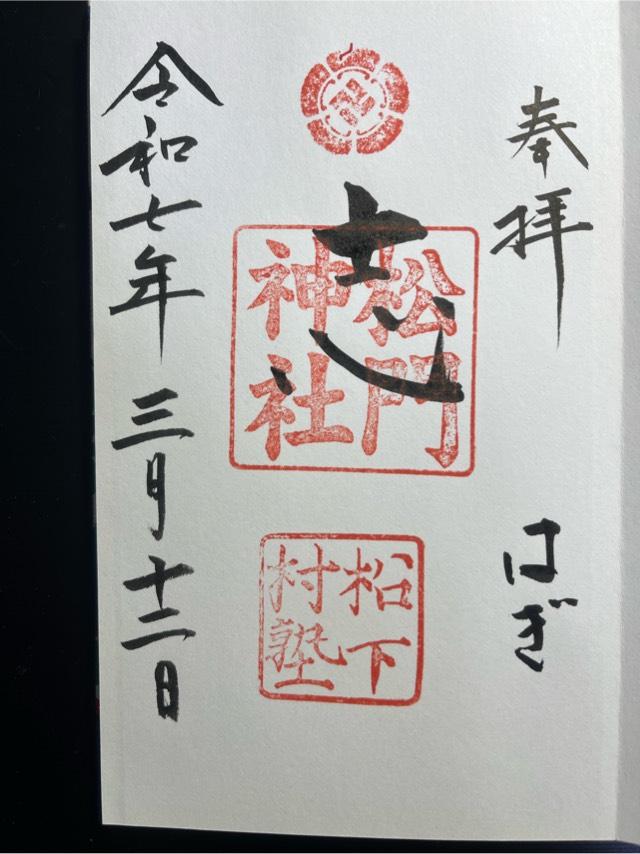 奉拝
はぎ
志
松門
神社
松下
村塾
令和七年 三月十二日